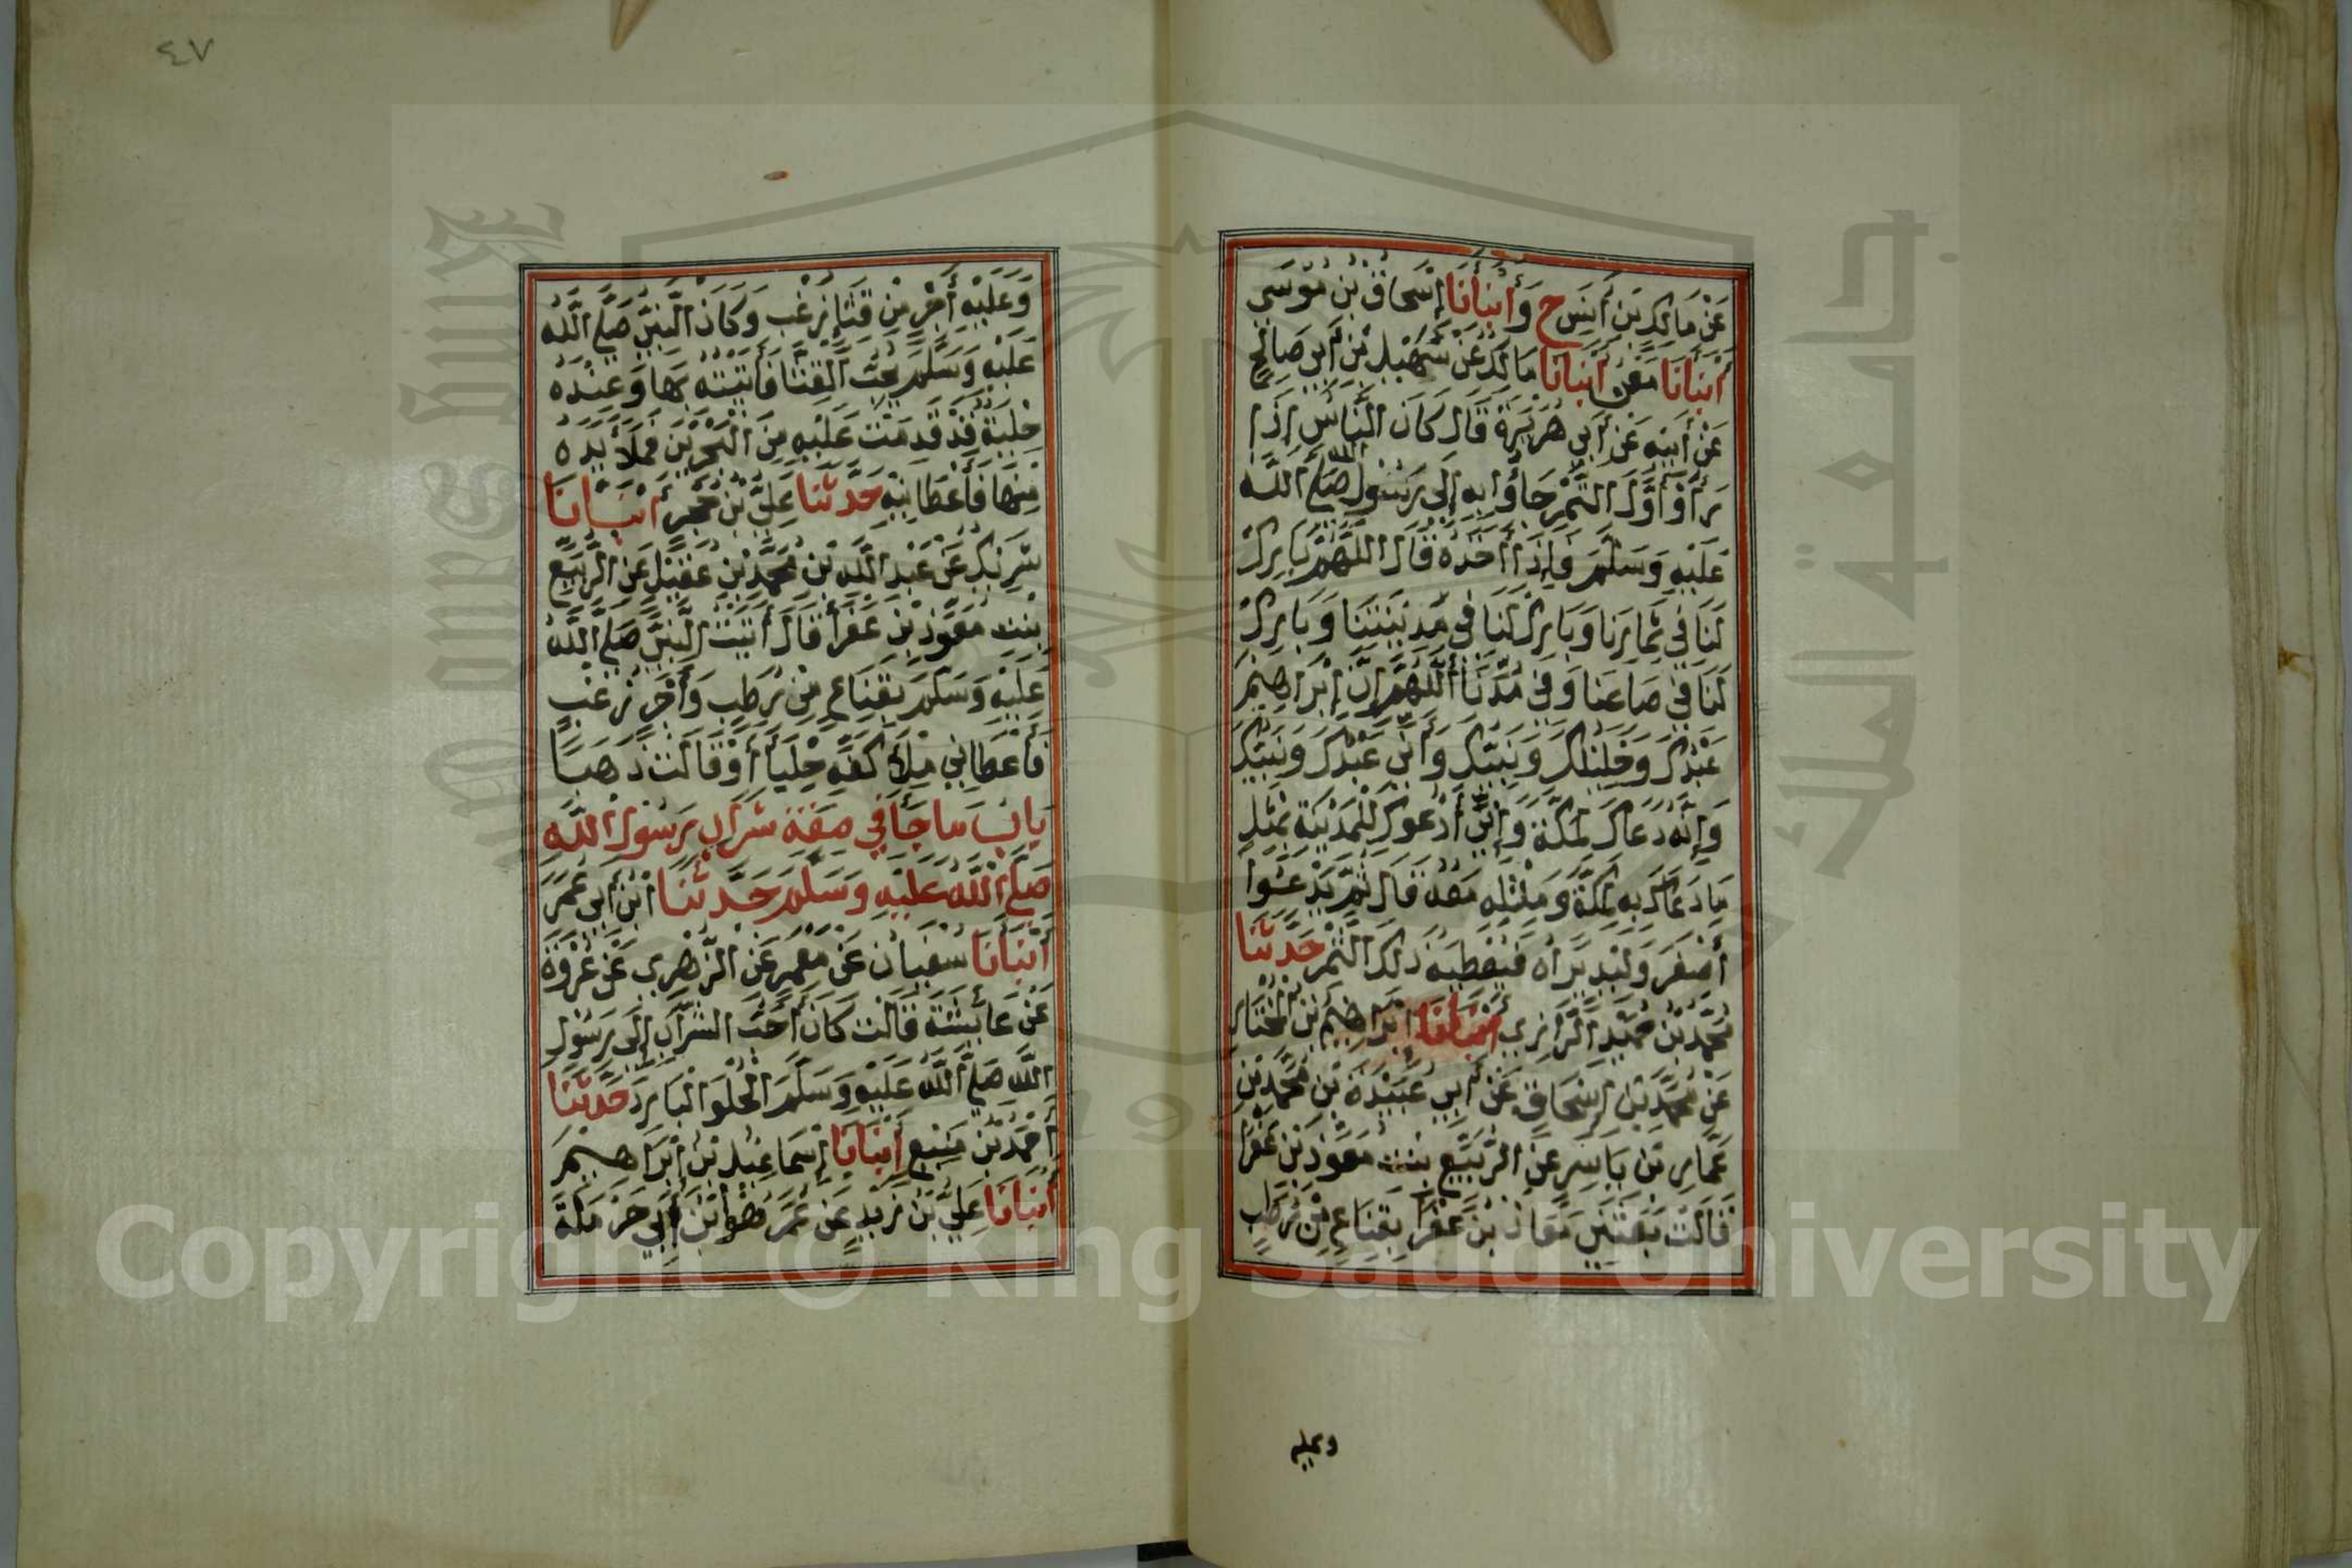 عَنْ مَالِكِ بْنِ أَنَسٍ ح وَأَنْبَأَنَا إِسْحَاقُ بْنُ مُوسَى
أَنْبَأَنَا مَعْنٌ أَنْبَأَنَا مَالِكٌ عَنْ سُهَيْلِ بْنِ أَبِي صَالِحٍ
عَنْ أَبِيهِ عَنْ أَبِي هُرَيْرَةَ قَالَ كَانَ النَّاسُ إِذَا
رَأَوْا أَوَّلَ التَّمْرِ جَاؤُا بِهِ إِلَى رَسُولِ اللّٰه صَلَّى اللَّه
عَلَيْهِ وَسَلَّمَ فَإِذَا أَخَذَهُ قَالَ اللَّهُمَّ بَارِكْ
لَنَا فِي ثِمَارِنَا وَبَارِكْ لَنَا فِي مَدِينَتِنَا وَبَارِكْ
لَنَا فِي صَاعِنَا وَفِي مُدِّنَا أَللَّهُمَّ إِنَّ إِبْرَاهِيمَ
عَبْدُكَ وَخَلِيلُكَ وَنَبِيُّكَ وَأَنِّي عَبْدُكَ وَنَبِيُّكَ
وَإِنَّهُ دَعَاكَ لِمَكَّةَ وَإِنِّي أَدْعُوكَ لِلْمَدِينَةِ بِمِثْلِ
مَا دَعَاكَ بِهِ لِمَكَّةَ وَمِثْلِهِ مَعَهُ قَالَ ثُمَّ يَدْعُوا
أَصْغَرَ وَلِيدٍ يَرَاهُ فَيُعْطِيهِ ذَلِكَ التَّمْرَ حَدَّثَنَا
مُحَمَّدُ بْنُ حُمَيْدٍ الرَّازِي أَنْبَأَنَا إِبْرَاهِيمُ بْنُ الْمُخْتَارِ
عَنْ مُحَمَّدِ بْنِ إِسْحَاقَ عَنْ أَبِي عُبَيْدَةَ بْنِ مُحَمَّدِ بْنِ
عَمَّارِ بْنِ يَاسِرٍ عَنِ الرُّبَيِّعِ بِنْتِ مُعَوِّذِ بْنِ عَفْرَا
قَالَتْ بَعَثَنِي مُعَاذُ بْنُ عَفْرَا بِقِنَاعٍ مِنْ رُطَبٍ
وعليه
٤٧
وَعَلَيْهِ أَجْرٍ مِنْ قِثَّاءٍ زُغْبٍ وَكَانَ النَّبِيُّ صَلَّى اللَّهُ
عَلَيْهِ وَسَلَّمَ يُحِبُّ الْقِثَّا فَأَتَيْتُهُ بِهَا وَعِنْدَهُ
حِلْيَةٌ قَدْ قَدِمَتْ عَلَيْهِ مِنَ الْبَحْرَيْنِ فَمَلَأَ يَدَهُ
مِنْهَا فَأَعْطَانِيهِ حَدَّثَنَا عَلِيُّ بْنُ حُجْرٍ أَنْبَأَنَا
شَرِيكٌ عَنْ عَبْدِ اللَّهِ بْنِ مُحَمَّدِ بْنِ عَقِيلٍ عَنِ الرُّبَيِّعِ
بِنْتِ مُعَوِّذِ بْنِ عَفْرَأَ قَالَ أَتَيْتُ النَّبِيَّ صَلَّى اللَّهُ
عَلَيْهِ وَسَلَّمَ بِقِنَاعٍ مِنْ رُطَبٍ وَأَجْرٍ زُغْبٍ
فَأَعْطَانِي مِلْأَ كَفِّهِ حُلِيًّا أَوْ قَالَتْ ذَهَبًا
بَابُ مَا جَأَ فِي صِفَةِ شَرَابِ رَسُولِ اللَّهِ
صَلَّى اللَّهُ عَلَيْهِ وَسَلَّمَ حَدَّثَنَا ابْنُ أَبِي عُمَرَ
أَنْبَأَنَا سُفْيَانُ عَنْ مَعْمَرٍ عَنِ الزُّهْرِي عَنْ عُرْوَةَ
عَنْ عَائِشَةَ قَالَتْ كَانَ أَحَبَّ الشَّرَابِ إِلَى رَسُولِ
اللَّهِ صَلَّى اللَّهُ عَلَيْهِ وَسَلَّمَ الْحُلْوَ الْبَارِدَ حَدَّثَنَا
أَحْمَدُ بْنُ مَنِيعٍ أَنْبَأَنَا إِسْمَاعِيلُ بْنُ إِبْرَاهِيمَ
أَنْبَأَنَا عَلِيُّ بْنُ زَيْدٍ عَنْ عُمَرَ هُوَ ابْنُ أَبِي حَرْمَلَةَ
جامعة الملك سعود
King Saud University
Copyright © King Saud University